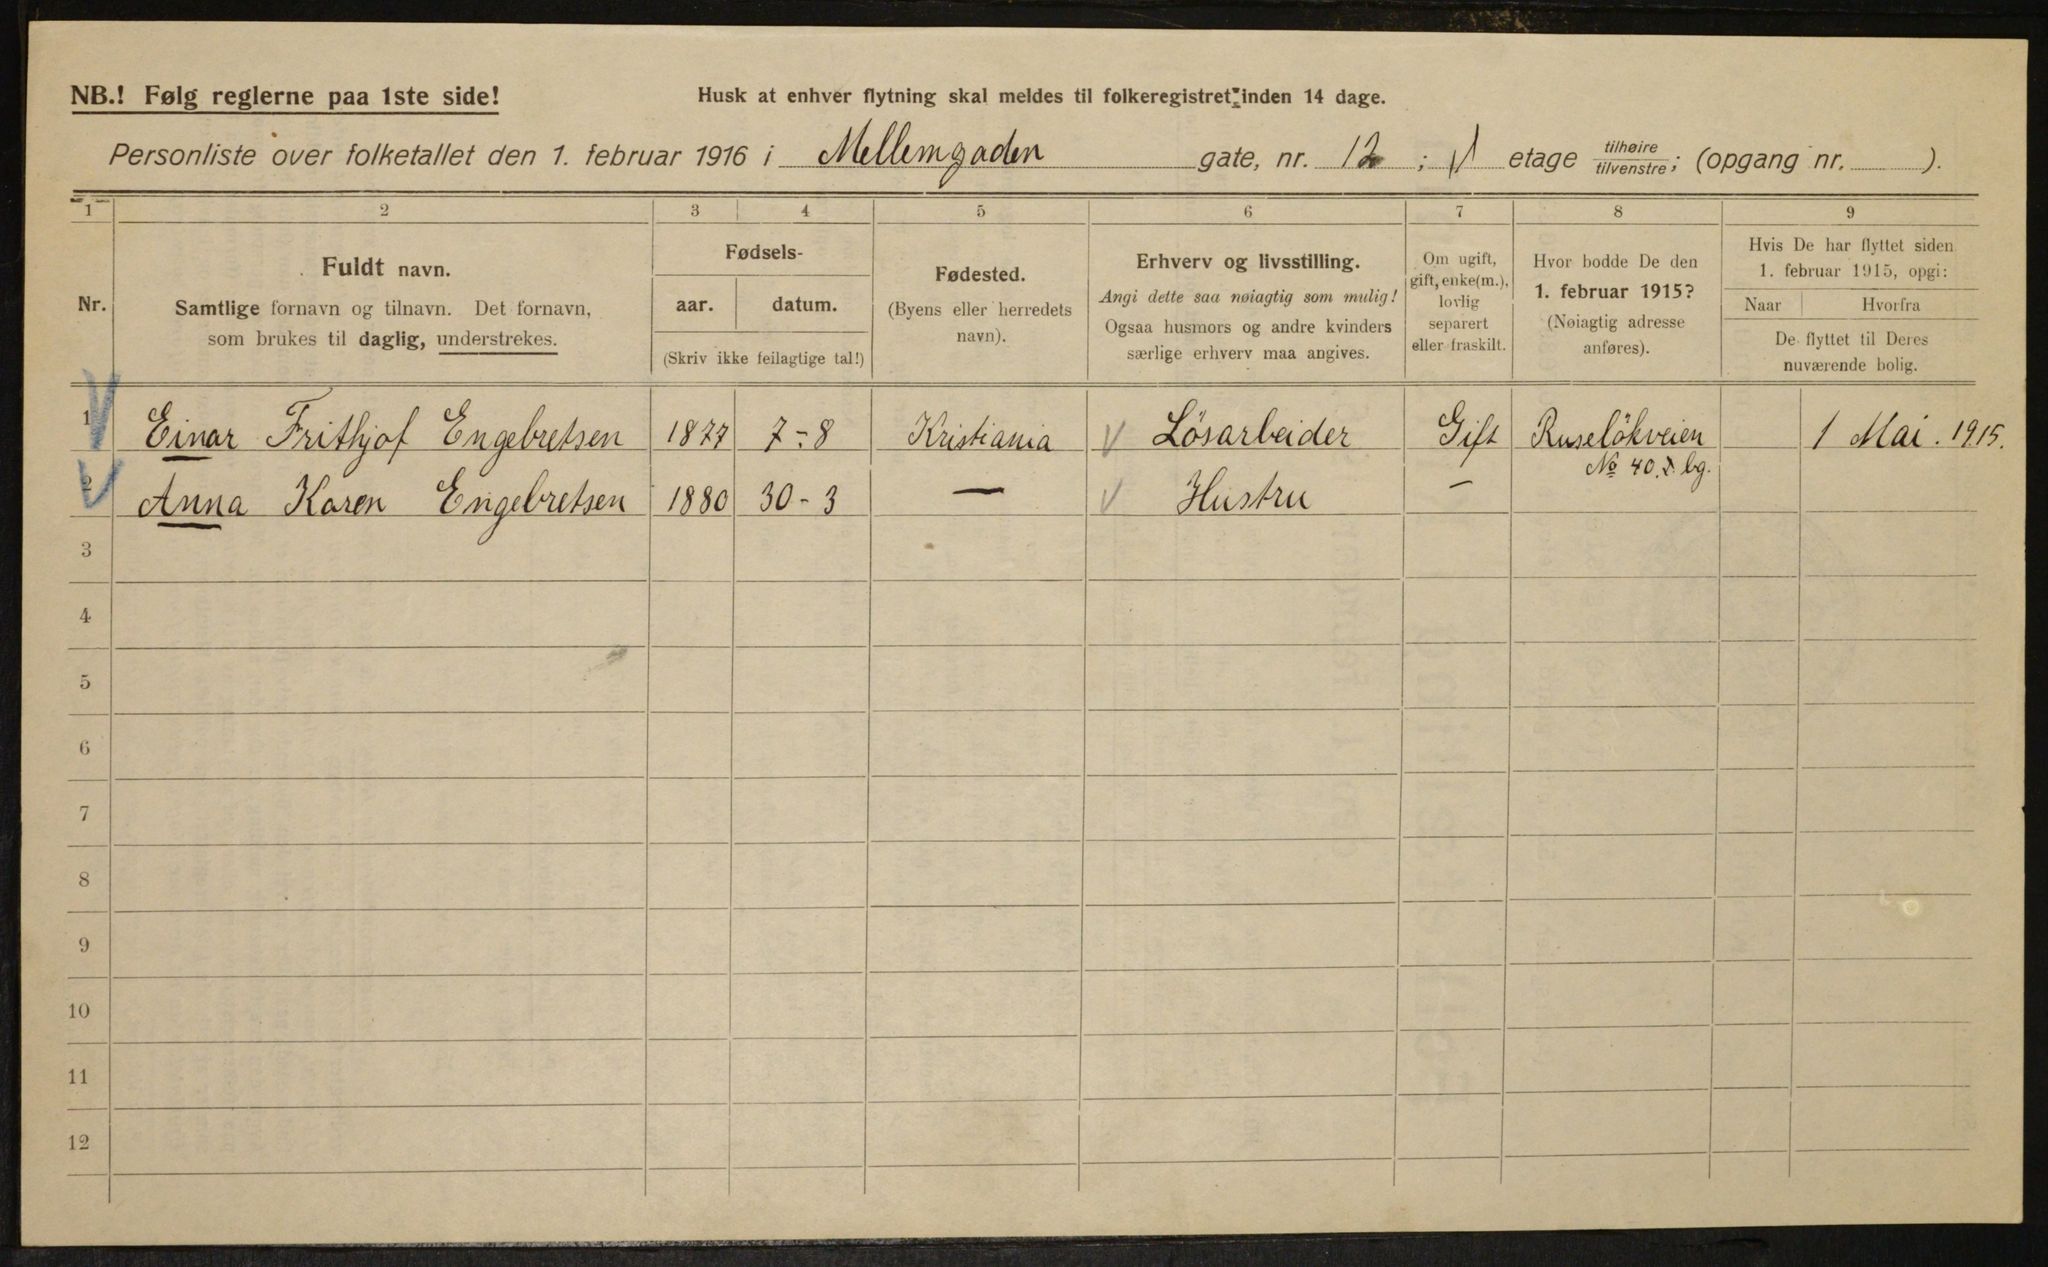 NB.! Følg reglerne paa 1ste side!
Husk at enhver flytning skal meldes til folkeregistret inden 14 dage.
Personliste over folketallet den 1. februar 1916 i Mellemgaden gate, nr. 12 ; etage tilhøire tilvenstre; (opgang nr. ).
1 2 3 4 5 6 7 8 9
Nr.
Fuldt navn.
Samtlige fornavn og tilnavn. Det fornavn,
som brukes til daglig, understrekes.
Fødsels-
aar. datum.
(Skriv ikke feilagtige tal!)
Fødested.
(Byens eller herredets
navn).
Erhverv og livsstilling.
Angi dette saa nøiagtig som mulig!
Ogsaa husmors og andre kvinders
særlige erhverv maa angives.
Om ugift,
gift, enke(m.),
lovlig
separert
eller fraskilt.
Hvor bodde De den
1. februar 1915?
(Nøiagtig adresse
anføres).
Hvis De har flyttet siden
1. februar 1915, opgi:
Naar Hvorfra
De flyttet til Deres
nuværende bolig.
1 Einar Frithjof Engebretsen 1877 7-8 Kristiania Lösarbeider Gift Ruselökveien 1 Mai. 1915.
No 40. bg.
2 Anna Karen Engebretsen 1880 30-3 — Hustru —
3
4
5
6
7
8
9
10
11
12